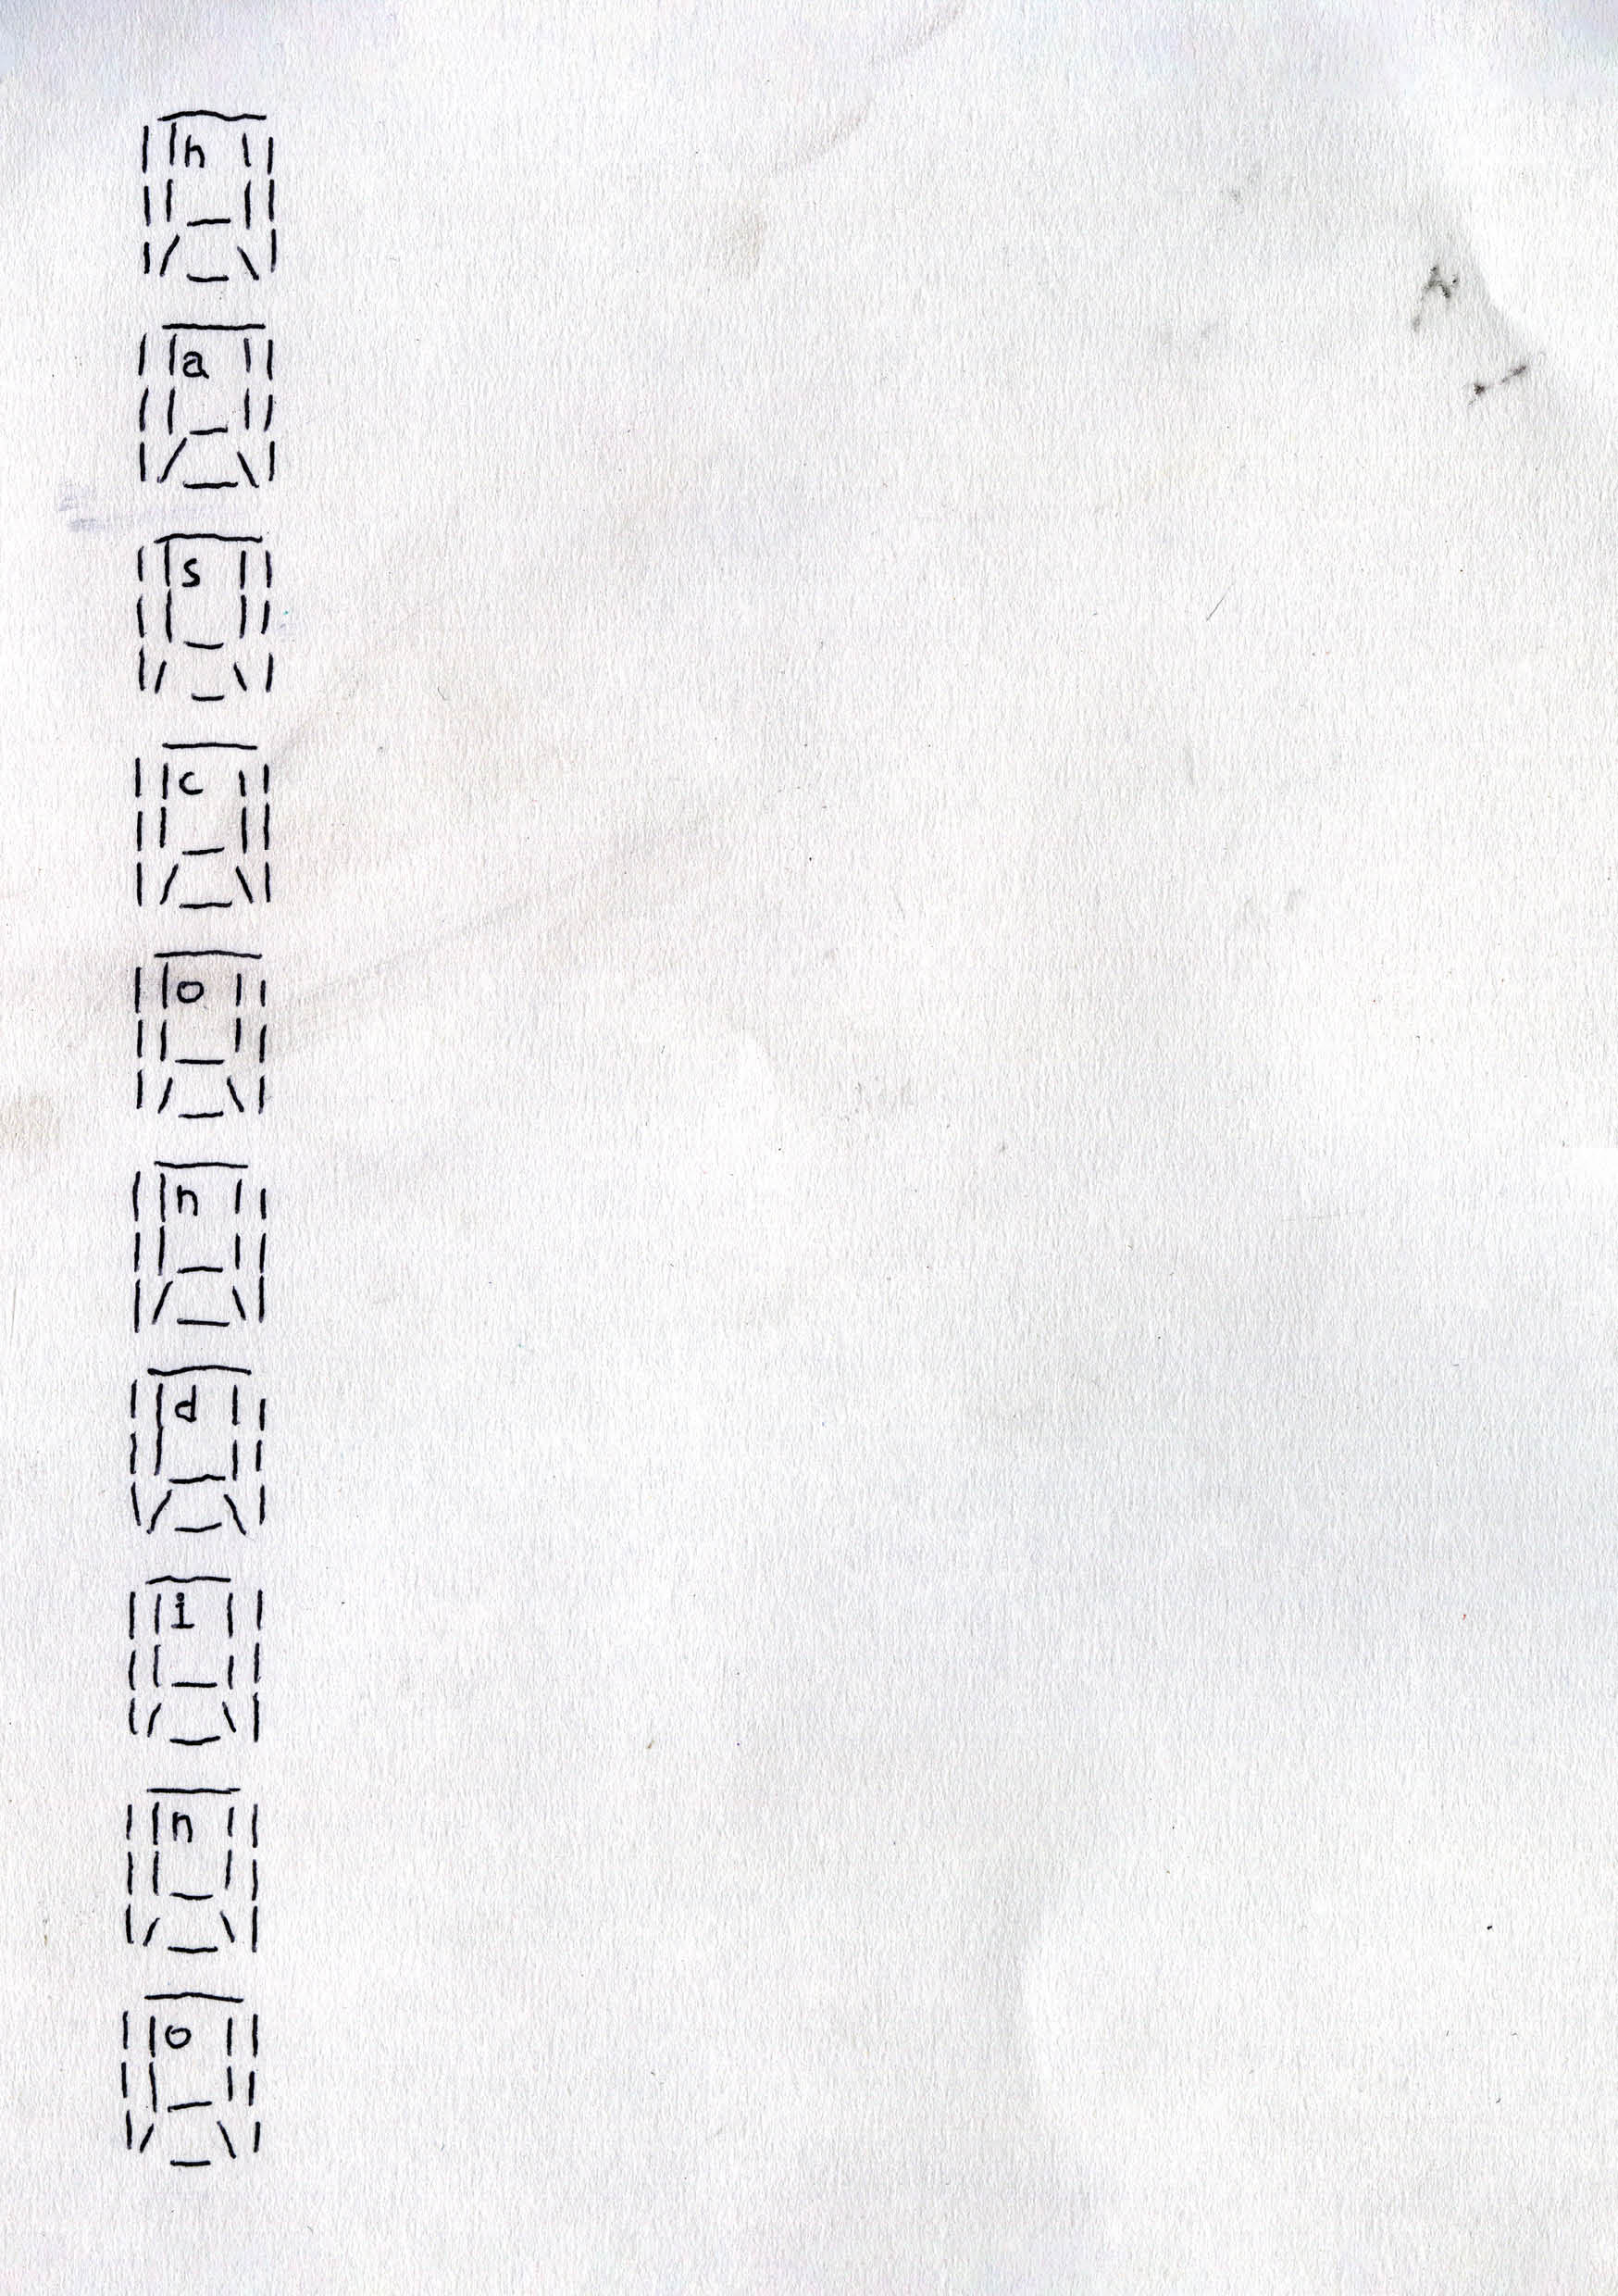 n
a
s
c
o
n
d
i
n
o